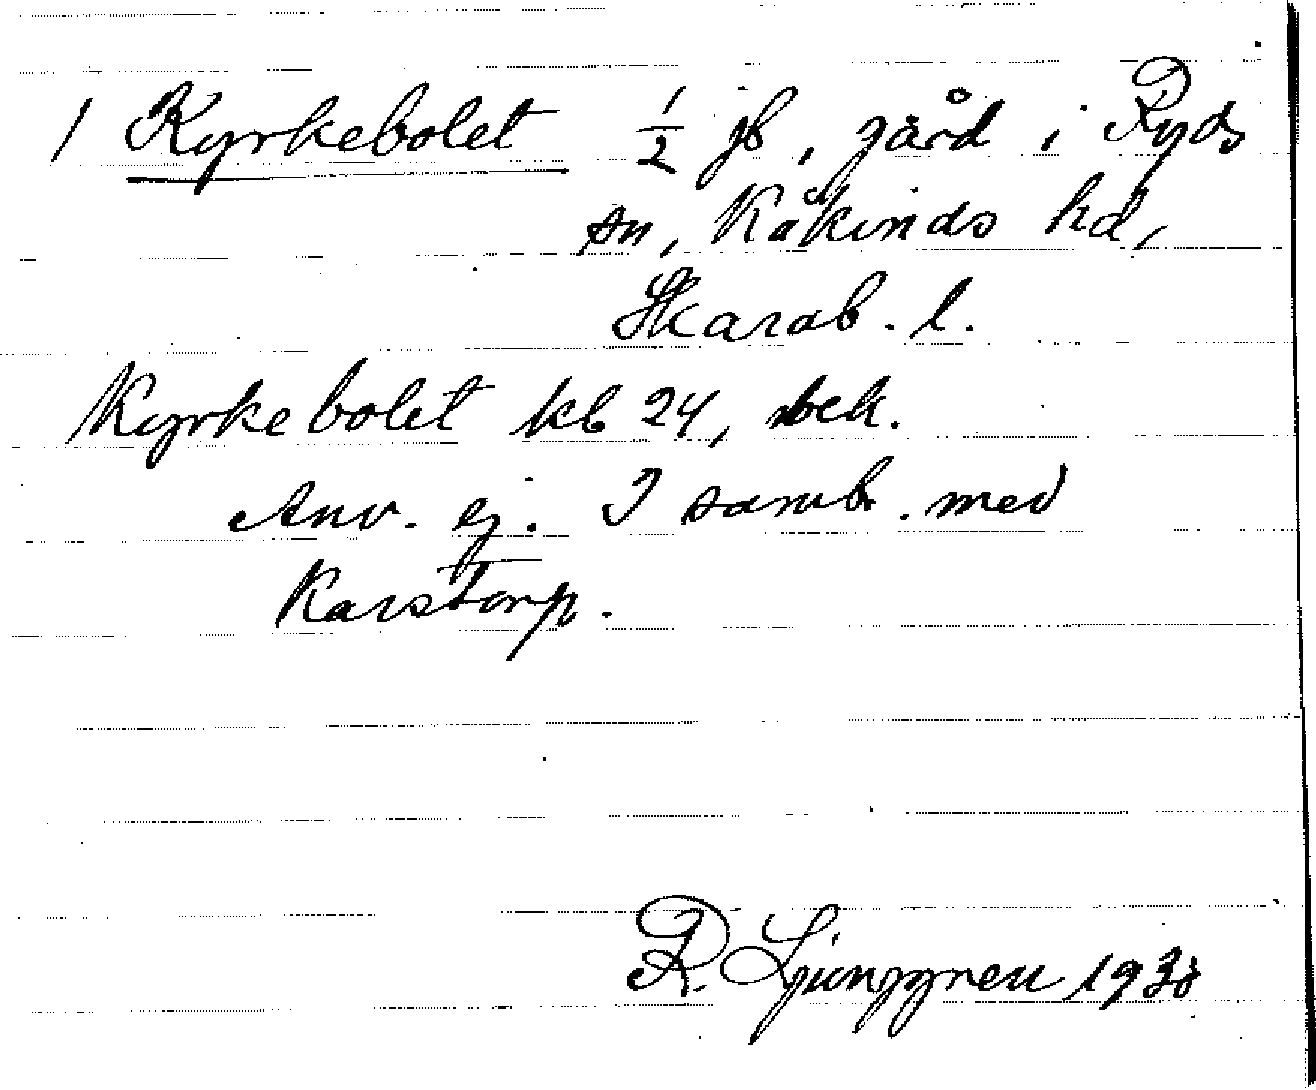 1 Kyrkebolet 1/2 jb, gård i Ryds
sn, Kåkinds hd,
Skarab. l.
Kyrkebolet kb 24, bek.
Anv. ej. I samb. med
Karstorp.
R. Ljunggren